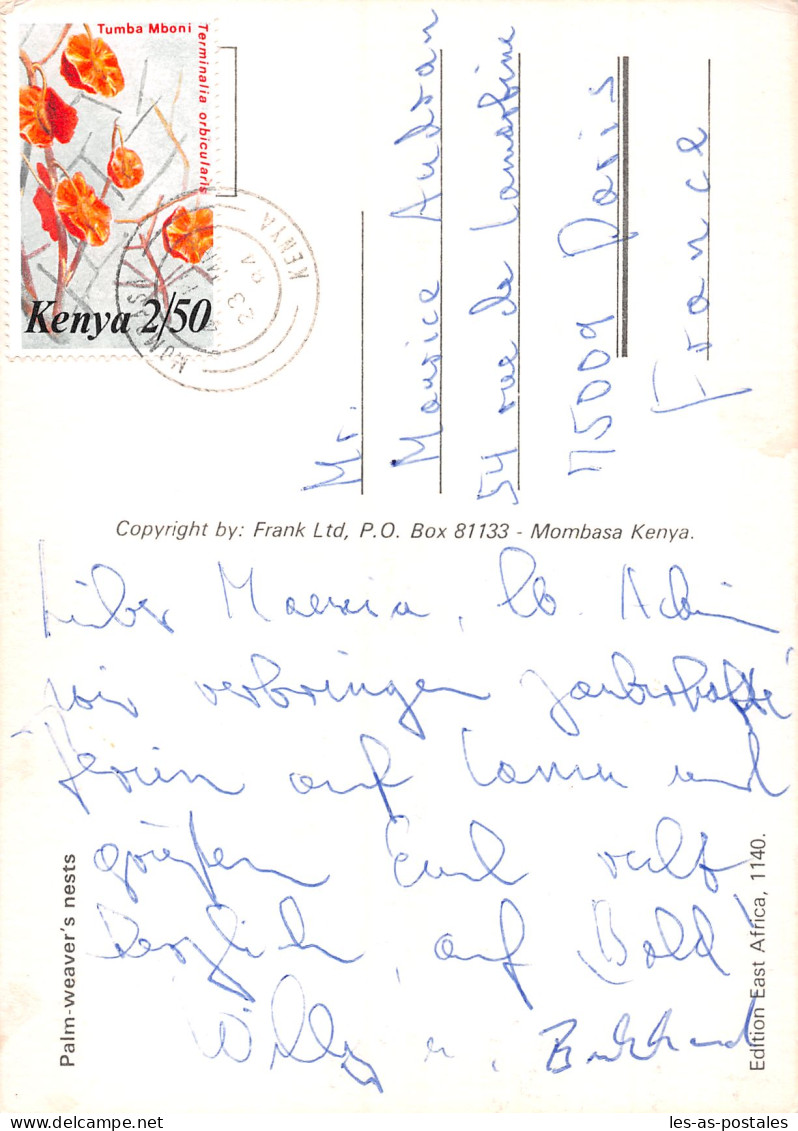 Tumba Mboni
Terminalia orbicularis
Kenya 2/50
MOMBASA
KENYA
23
84
Mr.
Maurice Audran
54 rue de Lamartine
75009 Paris
France
Copyright by: Frank Ltd, P.O. Box 81133 - Mombasa Kenya.
Lieber lb.
wir verbringen zauberhafte
Ferien auf Lamu und
grüßen Euch recht
herzlich, auf Bald
Willy u. Burkhard
Palm-weaver's nests
Edition East Africa, 1140.
les-as-postales